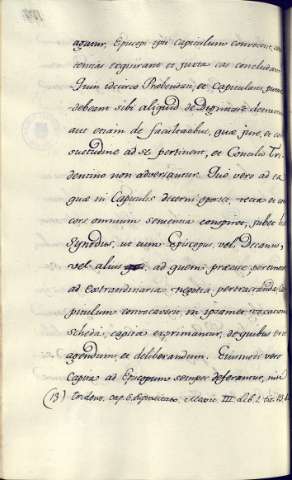 agatur, Episcopi ipsi Capitulum convocent,
tentias exquirant et juxta eas concludant
Quin idcirco Prebendati, et Capitulares
debeant sibi aliquid de Dignitate demum
aut etiam de facultatibus, quæ jure, et con
suetudine ad se pertinent, et Concilio Tri
dentino non adversantur. Quo vero ad ea
quæ in Capitulis decerni oportet, recta et con
cors omnium sententia conspiret, jubet hæc
Synodus, ut cum Episcopus, vel Decanus,
vel alius, ad quem præcipue pertinent
ad extraordinaria negotia pertractanda Ca
pitulum convocaverit, in ipsamet vocationis
scheda, capita exprimantur, de quibus erit
agendum, et deliberandum. Ejusmodi vero
Capita ad Episcopum semper deferantur, nisi
(13) Trident. cap. 6. Mexic. III. lib. 2. tit.